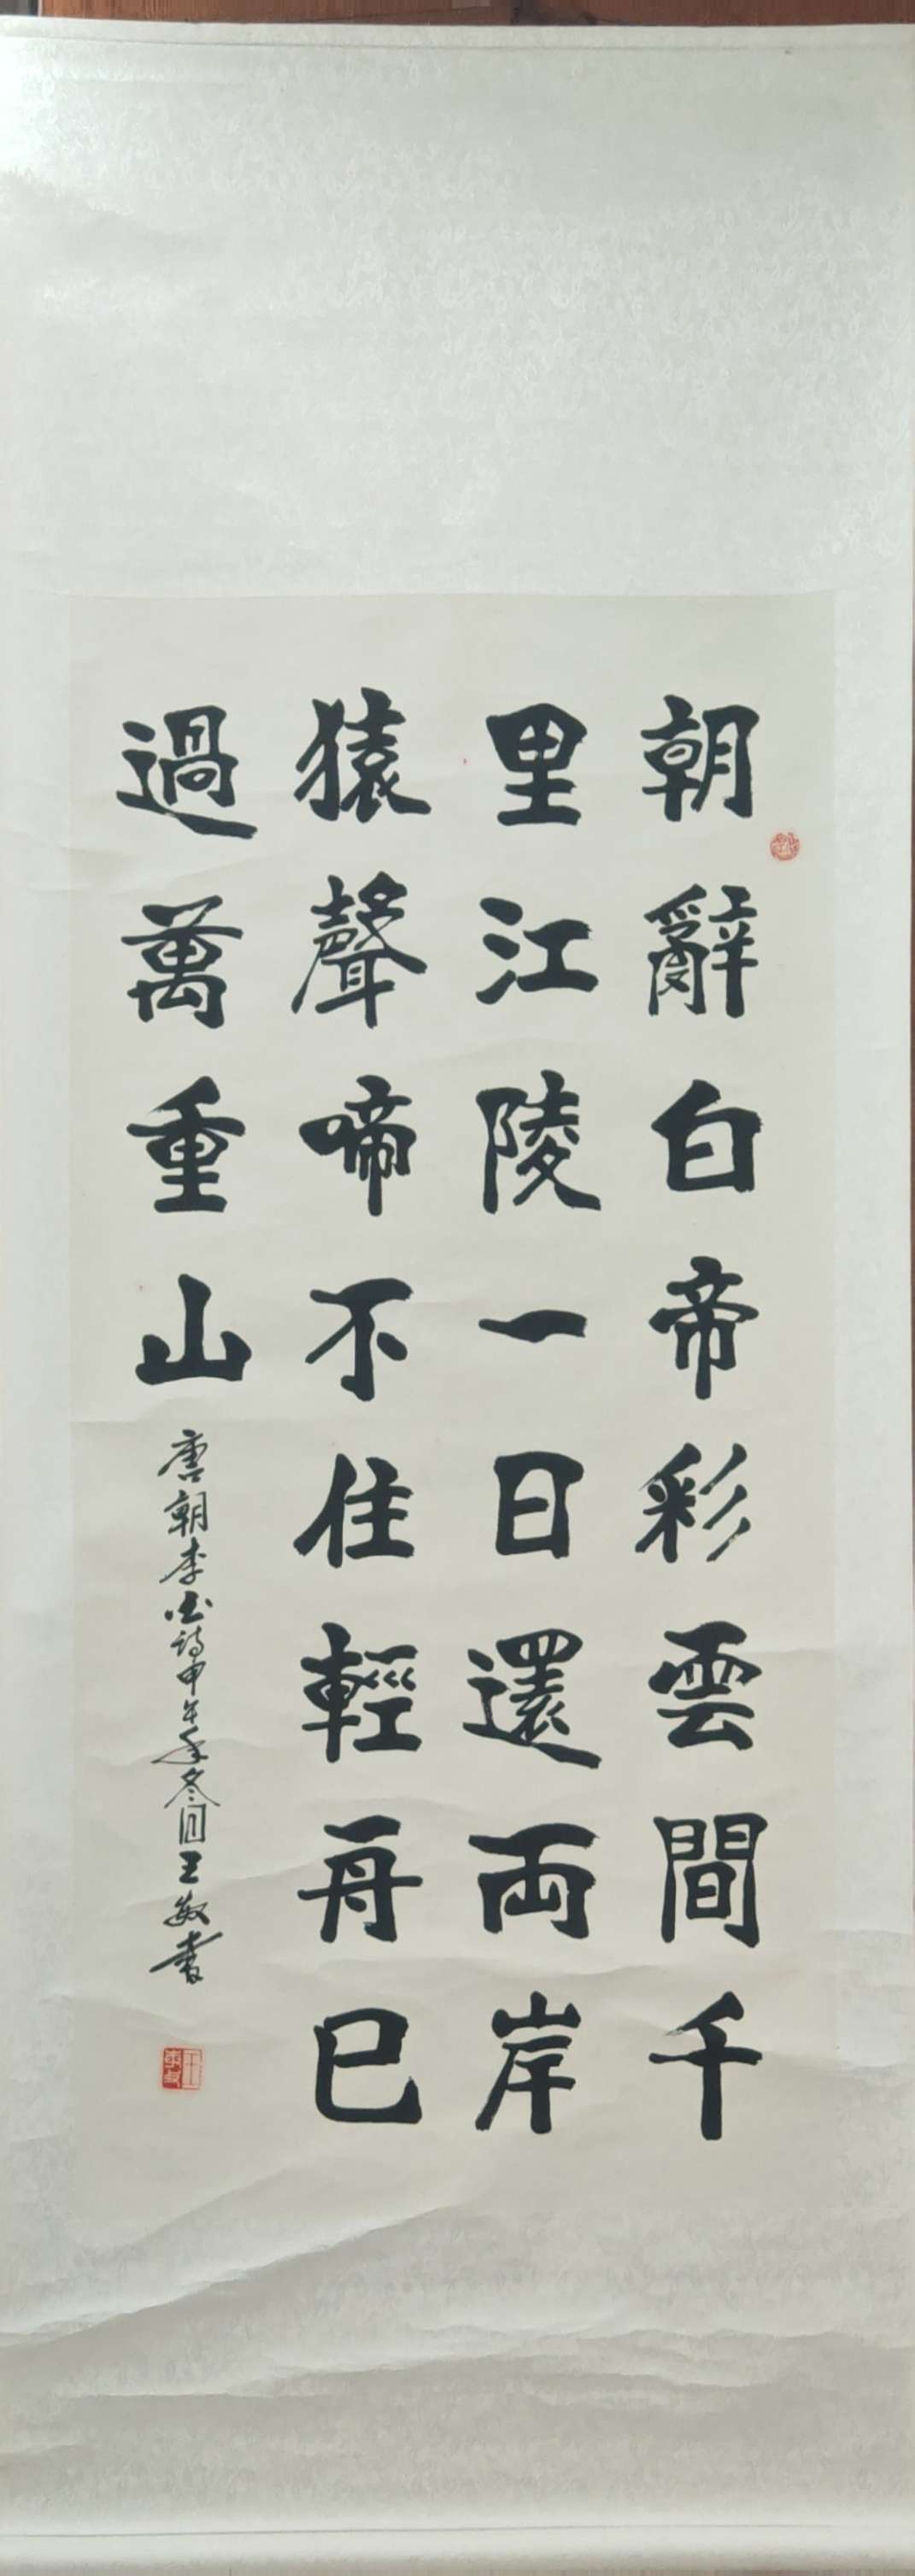 朝辭白帝彩雲間千
里江陵一日還両岸
猿聲啼不住輕舟已
過萬重山
唐朝李白詩甲午年冬月王敏書